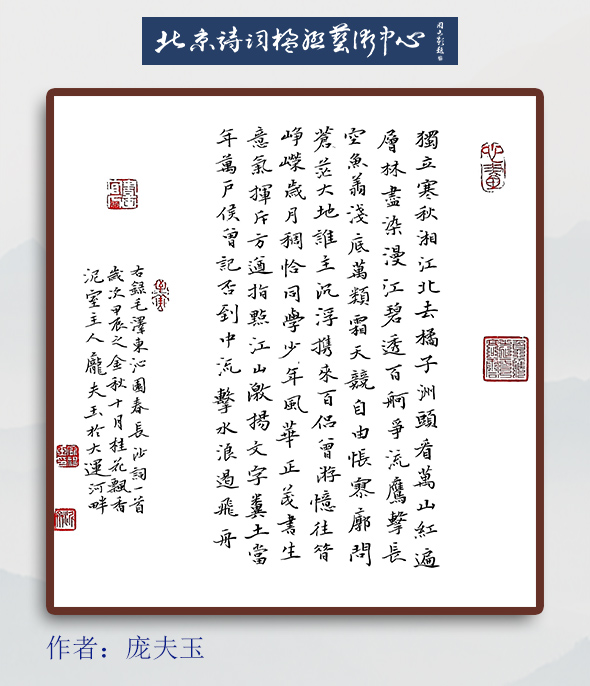 北京詩词楹聯藝術中心
獨立寒秋湘江北去橘子洲頭看萬山紅遍
層林盡染漫江碧透百舸爭流鷹擊長
空魚翔淺底萬類霜天競自由悵寥廓問
蒼茫大地誰主沉浮携來百侶曾游憶往昔
崢嶸歲月稠恰同學少年風華正茂書生
意氣揮斥方遒指點江山激揚文字糞土當
年萬戶侯曾記否到中流擊水浪遏飛舟
右錄毛澤東沁園春長沙詞一首
歲次甲辰之金秋十月桂花飄香
泥室主人龐夫玉於大運河畔
作者：庞夫玉